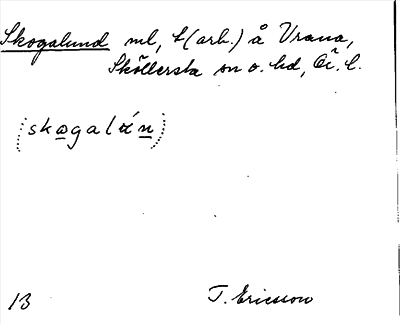 Skogalund ml, t (arb.) å Vrana,
Sköllersta sn o. hd, Ör. l.
(skogalún)
13
T. Ericsson